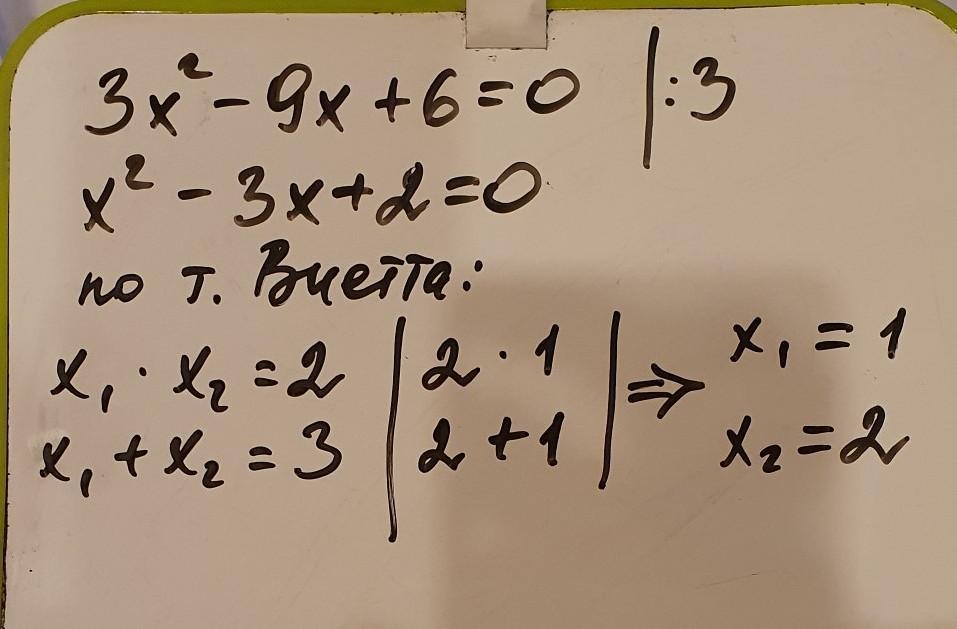 3x² - 9x + 6 = 0 | : 3
x² - 3x + 2 = 0
по т. Виетта:
x₁ · x₂ = 2 | 2 · 1 | ⇒ x₁ = 1
x₁ + x₂ = 3 | 2 + 1 | x₂ = 2